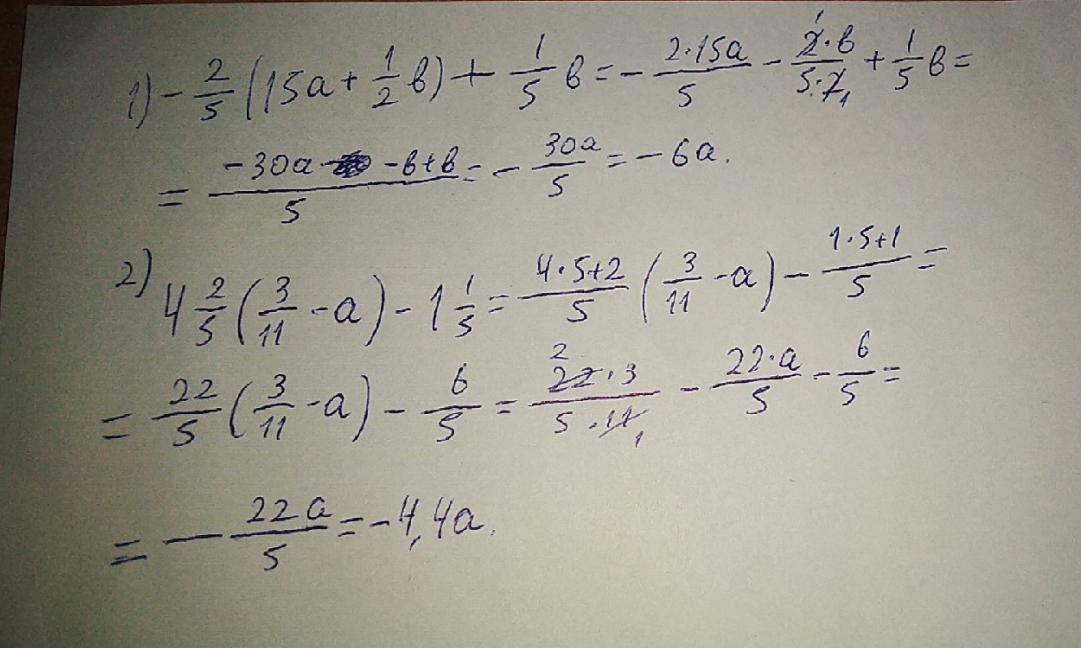 1) - 2/5 (15a + 1/2 в) + 1/5 в = - 2·15a/5 - 2·в/5·2 + 1/5 в =
= -30a -в+в/5 = - 30a/5 = -6a.
2) 4 2/5 (3/11 - a) - 1 1/5 = 4·5+2/5 (3/11 - a) - 1·5+1/5 =
= 22/5 (3/11 - a) - 6/5 = 22·3/5·11 - 22·a/5 - 6/5 =
= - 22a/5 = -4,4a.